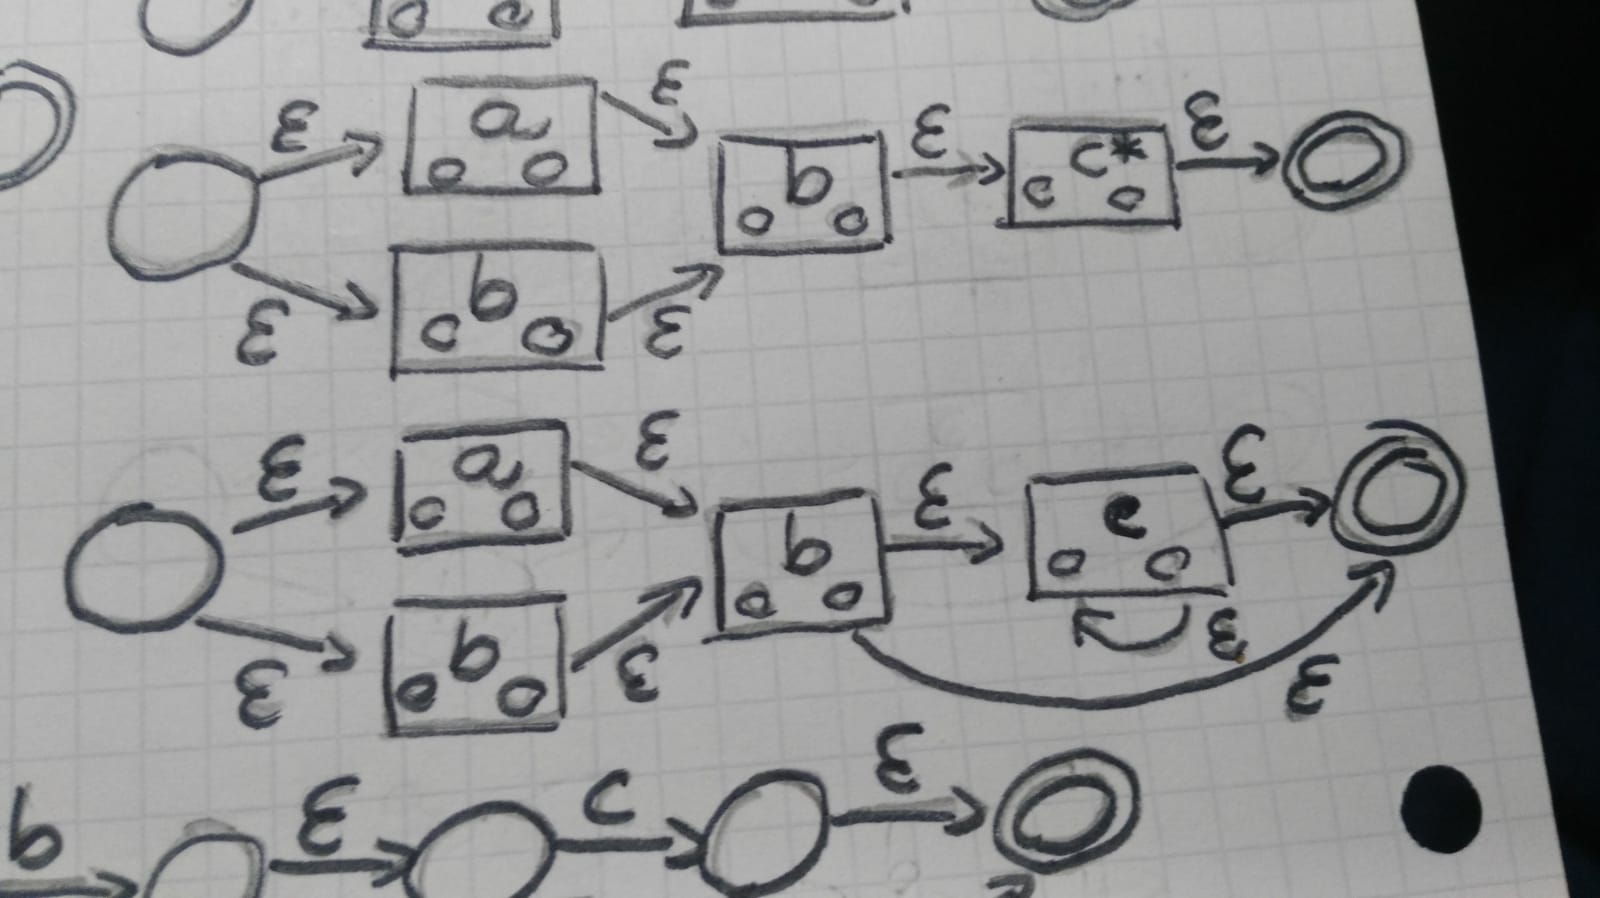 ε a ε b ε c* ε
ε b ε
ε a ε b ε c ε
ε b ε ε ε
b ε c ε